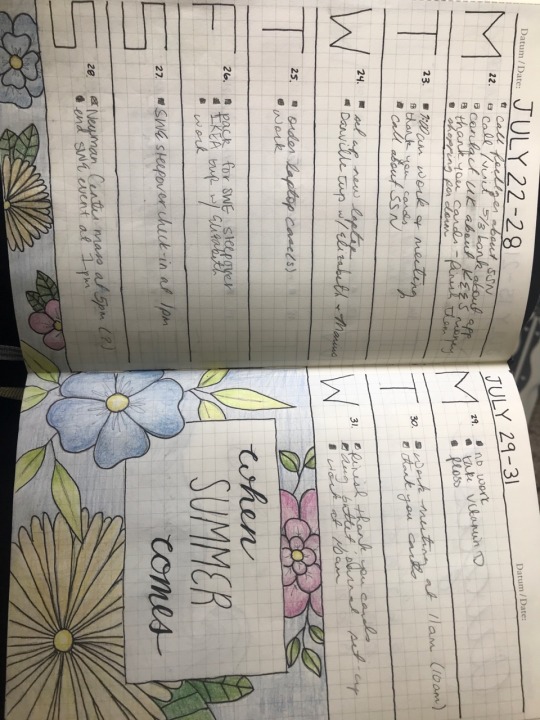 Datum / Date:
JULY 22-28
M
22.
call about SSN
call/visit 5/3 bank about app
contact UK about KEES money
thank you cards - finish them
T
23.
work & meeting
thank you cards
call about SSN
W
24.
set up new laptop
Danville trip w/ Elizabeth +
T
25.
order laptop case(s)
work
F
26.
pack for SWE sleepover
IKEA trip w/ Elizabeth
work
S
27.
SWE sleepover check-in at 1pm
S
28.
Newman Center mass at 5pm (?)
end SWE event at 1pm
Datum / Date:
JULY 29-31
M
29.
no work
take vitamin D
floss
T
30.
work meeting at 11am (10am)
thank you cards
W
31.
finish thank you cards
bullet journal set-up
work at 10am
when
SUMMER
comes